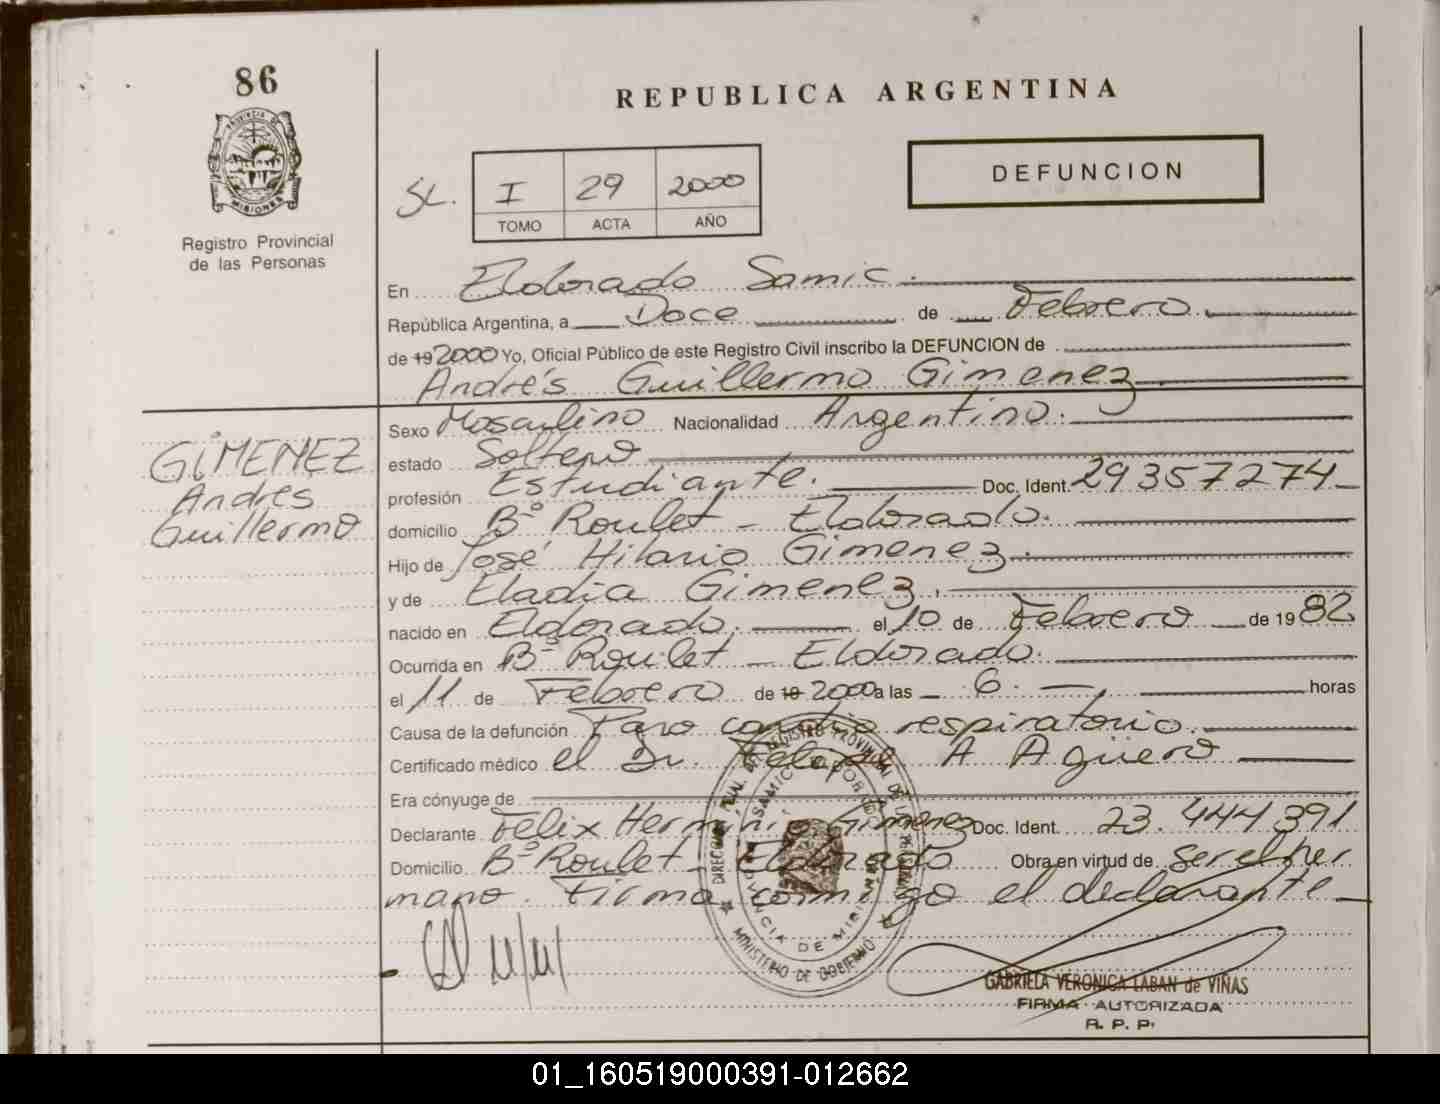 86
PROVINCIA DE
MISIONES
Registro Provincial
de las Personas
REPUBLICA ARGENTINA
DEFUNCION
I 29 2000
TOMO ACTA AÑO
En Eldorado Samic.
República Argentina, a Doce de Febrero
de 19 2000 Yo, Oficial Público de este Registro Civil inscribo la DEFUNCION de
Andrés Guillermo Gimenez
GIMENEZ
Andrés
Guillermo
Sexo Masculino Nacionalidad Argentino.
estado Soltero
profesión Estudiante. Doc. Ident. 29357274
domicilio Bº Roulet - Eldorado.
Hijo de José Hilario Gimenez
y de Eladia Gimenez.
nacido en Eldorado. el 10 de Febrero de 1982
Ocurrida en Bº Roulet - Eldorado.
el 11 de Febrero de 19 2000 a las 6. horas
Causa de la defunción Paro cardio respiratorio
Certificado médico el Dr. A Agüero
Era cónyuge de
Declarante Félix Herminio Gimenez Doc. Ident. 23.444391
Domicilio Bº Roulet - Eldorado Obra en virtud de ser el her
mano. firma conmigo el declarante
REGISTRO PROVINCIAL DE LAS PERSONAS
SAMIC
PROVINCIA DE MISIONES
MINISTERIO DE GOBIERNO
GABRIELA VERONICA LABAN de VIÑAS
FIRMA AUTORIZADA
R. P. P.
01_160519000391-012662